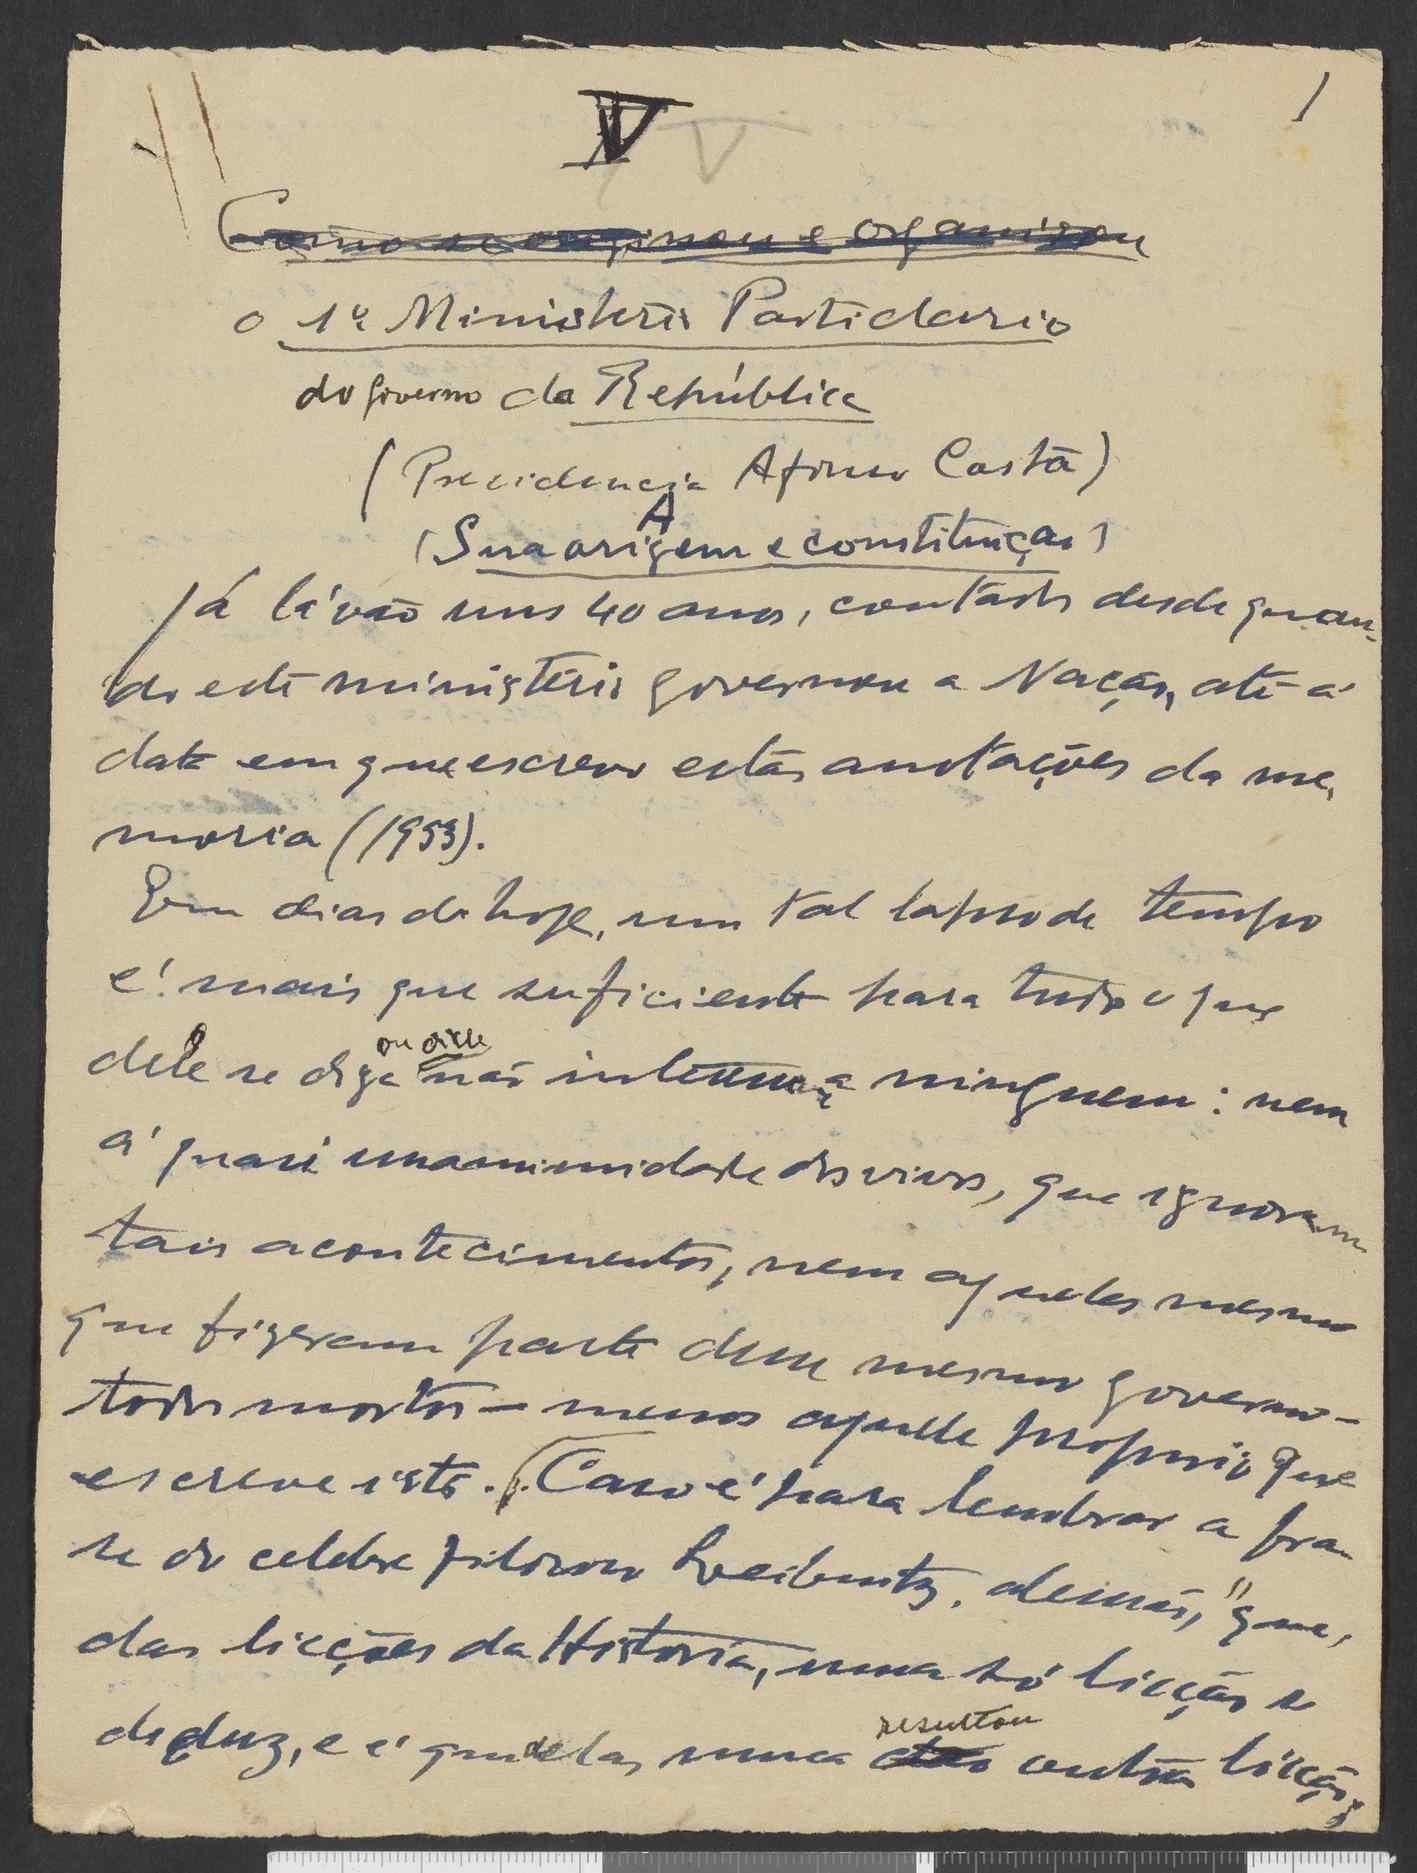 1
V V
Como se originou e organizou
o 1º Ministério Partidario
do Governo da República
(Presidencia Afonso Costa)
A
(Sua origem e constituição)
Já lá vão uns 40 anos, contados desde quan-
do este ministério governou a Nação, até á
data em que escrevo estas anotações da me-
moria (1953).
Em dias de hoje, um tal lapso de tempo
é mais que suficiente para tudo o que
ou disse
dele se diga não interessar a ninguem: nem
á quasi unanimidade dos vivos, que ignoram
tais acontecimentos, nem aqueles mesmo
que fizeram parte desse mesmo governo -
todos mortos - menos aquele proprio que
escreve isto. Caso é para lembrar a fra-
se do celebre filosofo Leibnitz, alemão, "que,
das licções da Historia, uma só licção se
resultou
deduz, e é que delas nunca outra licção;